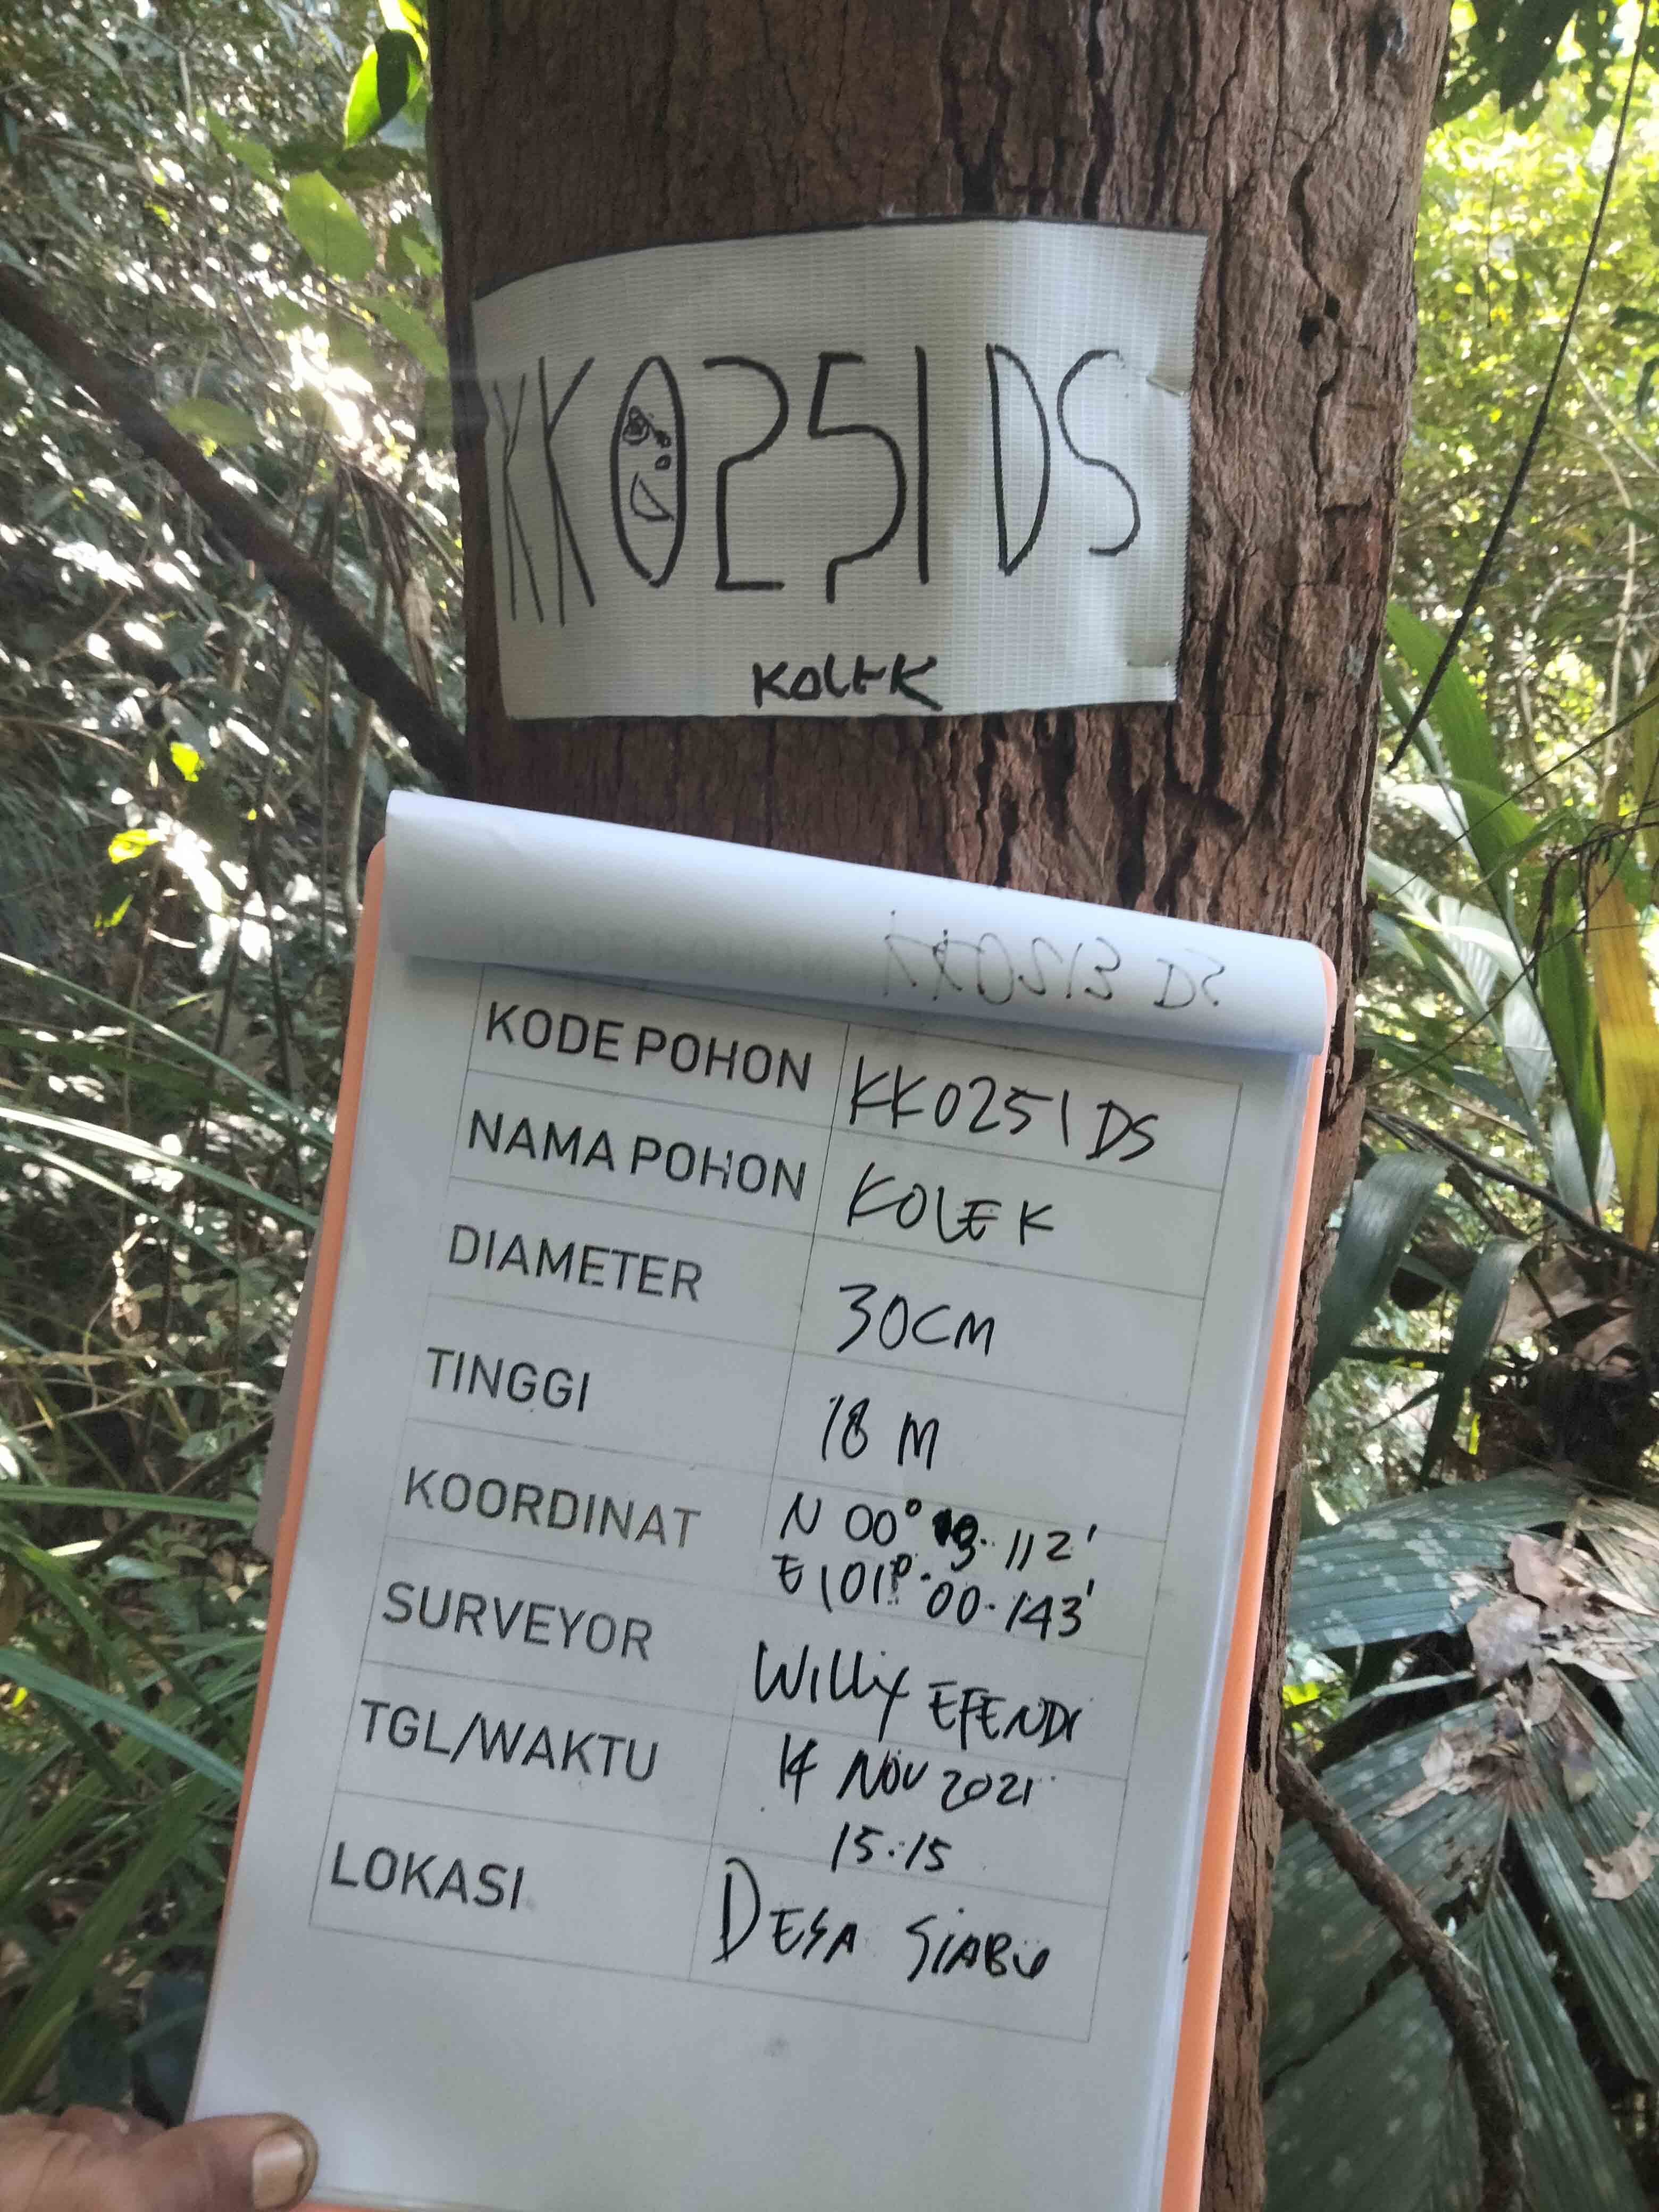 KK0251 DS
KOLEK
KODE POHON KK0251 DS
NAMA POHON KOLEK
DIAMETER 30CM
TINGGI 18 M
KOORDINAT N 00° 112'
E 101° 00.143'
SURVEYOR WILLY EFENDI
TGL/WAKTU 14 NOV 2021
15:15
LOKASI DESA SIABU